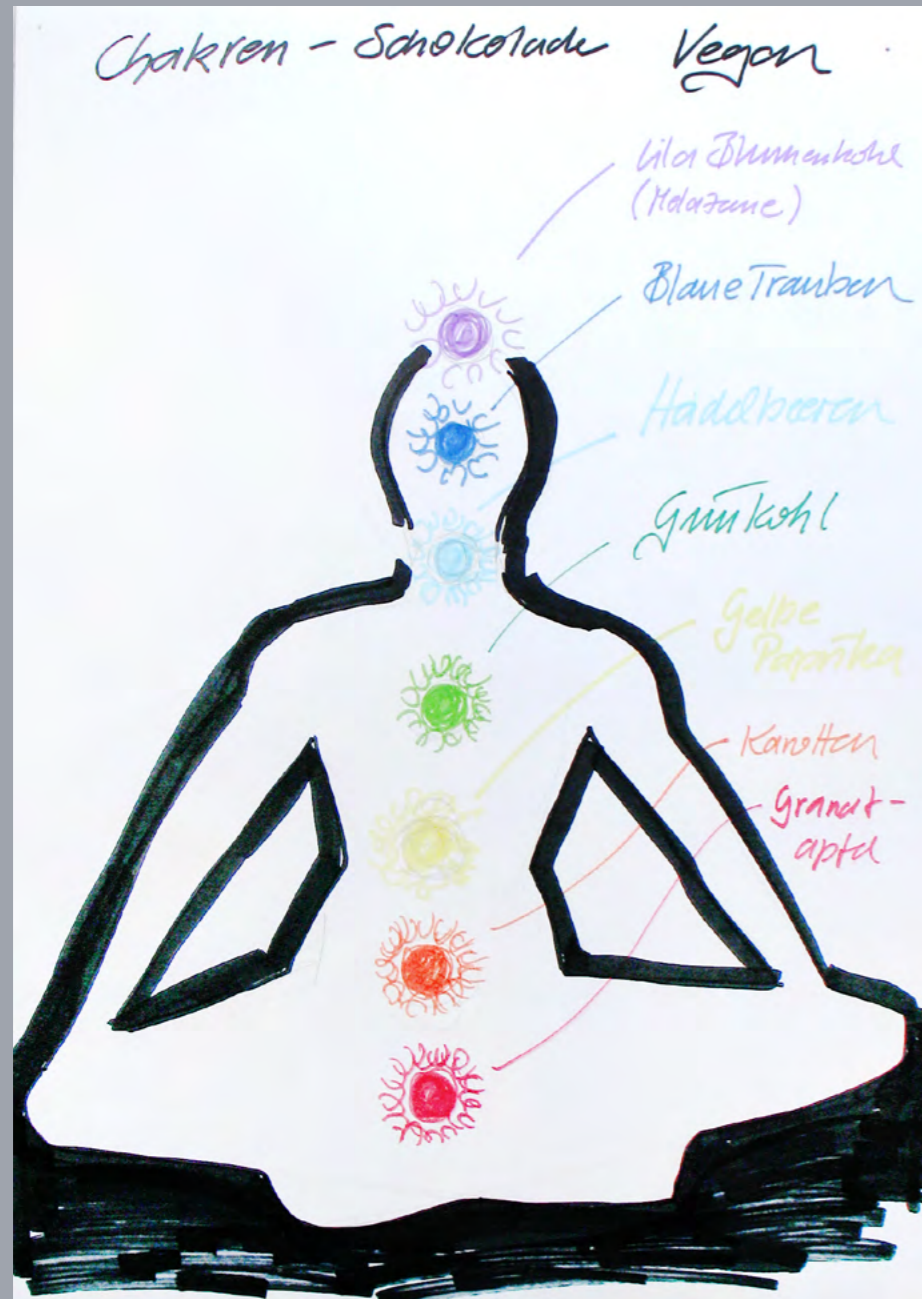 Chakren - Schokolade Vegan
Lila Blumenkohl
(Melazane)
Blaue Trauben
Heidelbeeren
Grünkohl
Gelbe
Paprika
Karotten
Granat-
apfel